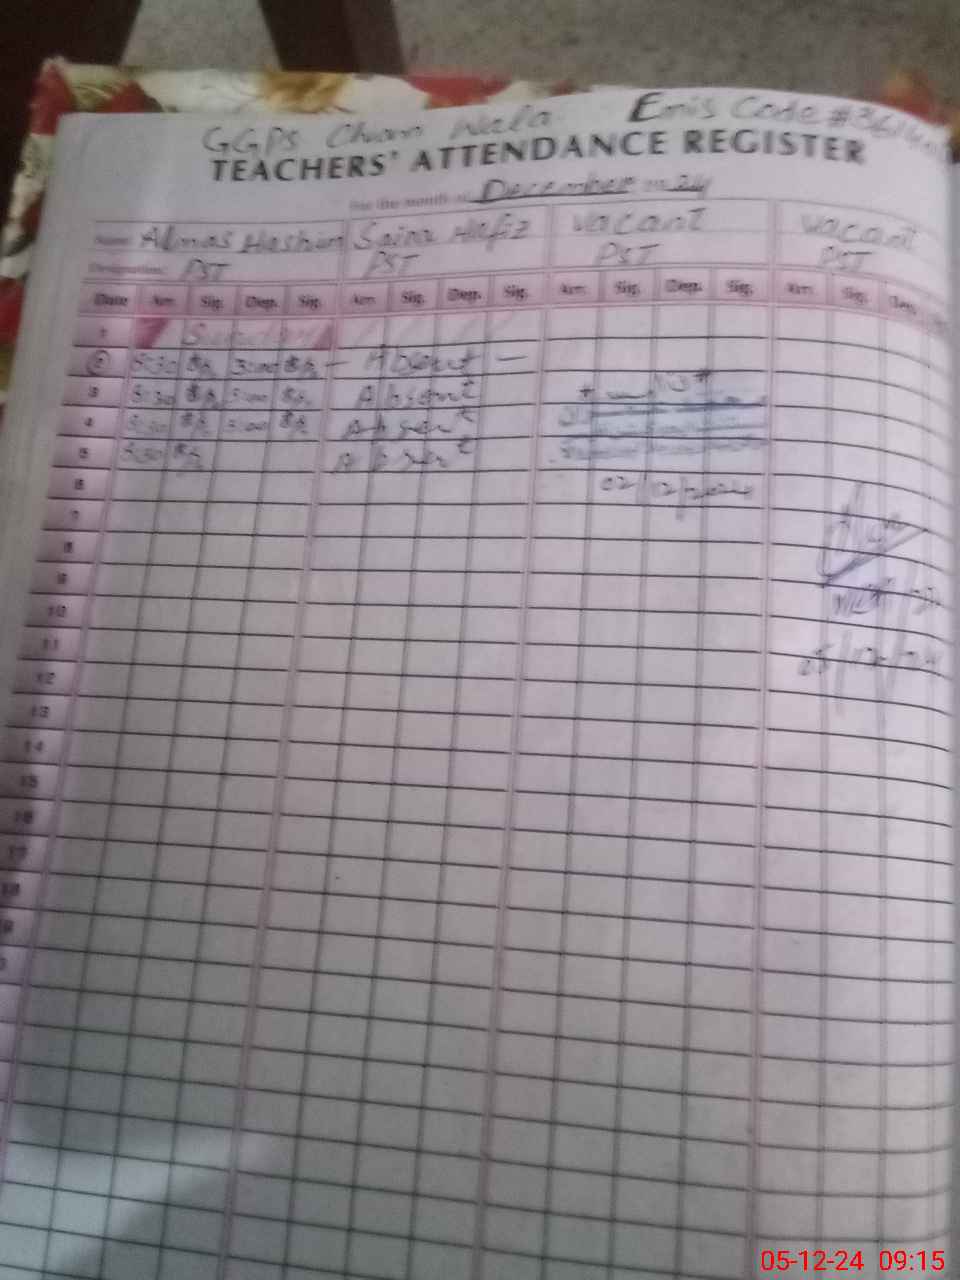 GGPS Chaan Wala. Emis Code # 3614
TEACHERS' ATTENDANCE REGISTER
For the month of December 24
Name Almas Hashim Saira Hafiz vacant vacant
Designation PST PST PST PST
Date Arr. Sig. Dep. Sig. Arr. Sig. Dep. Sig. Arr. Sig. Dep. Sig. Arr. Sig. Dep.
1 Sunday
2 8:30 3:00 — Absent —
3 8:30 3:00 Absent
4 8:30 3:00 Absent
5 8:30 Absent
6 02/12/2024
7
8
9
10
11
12 05/12/24
13
14
15
16
17
18
05-12-24 09:15